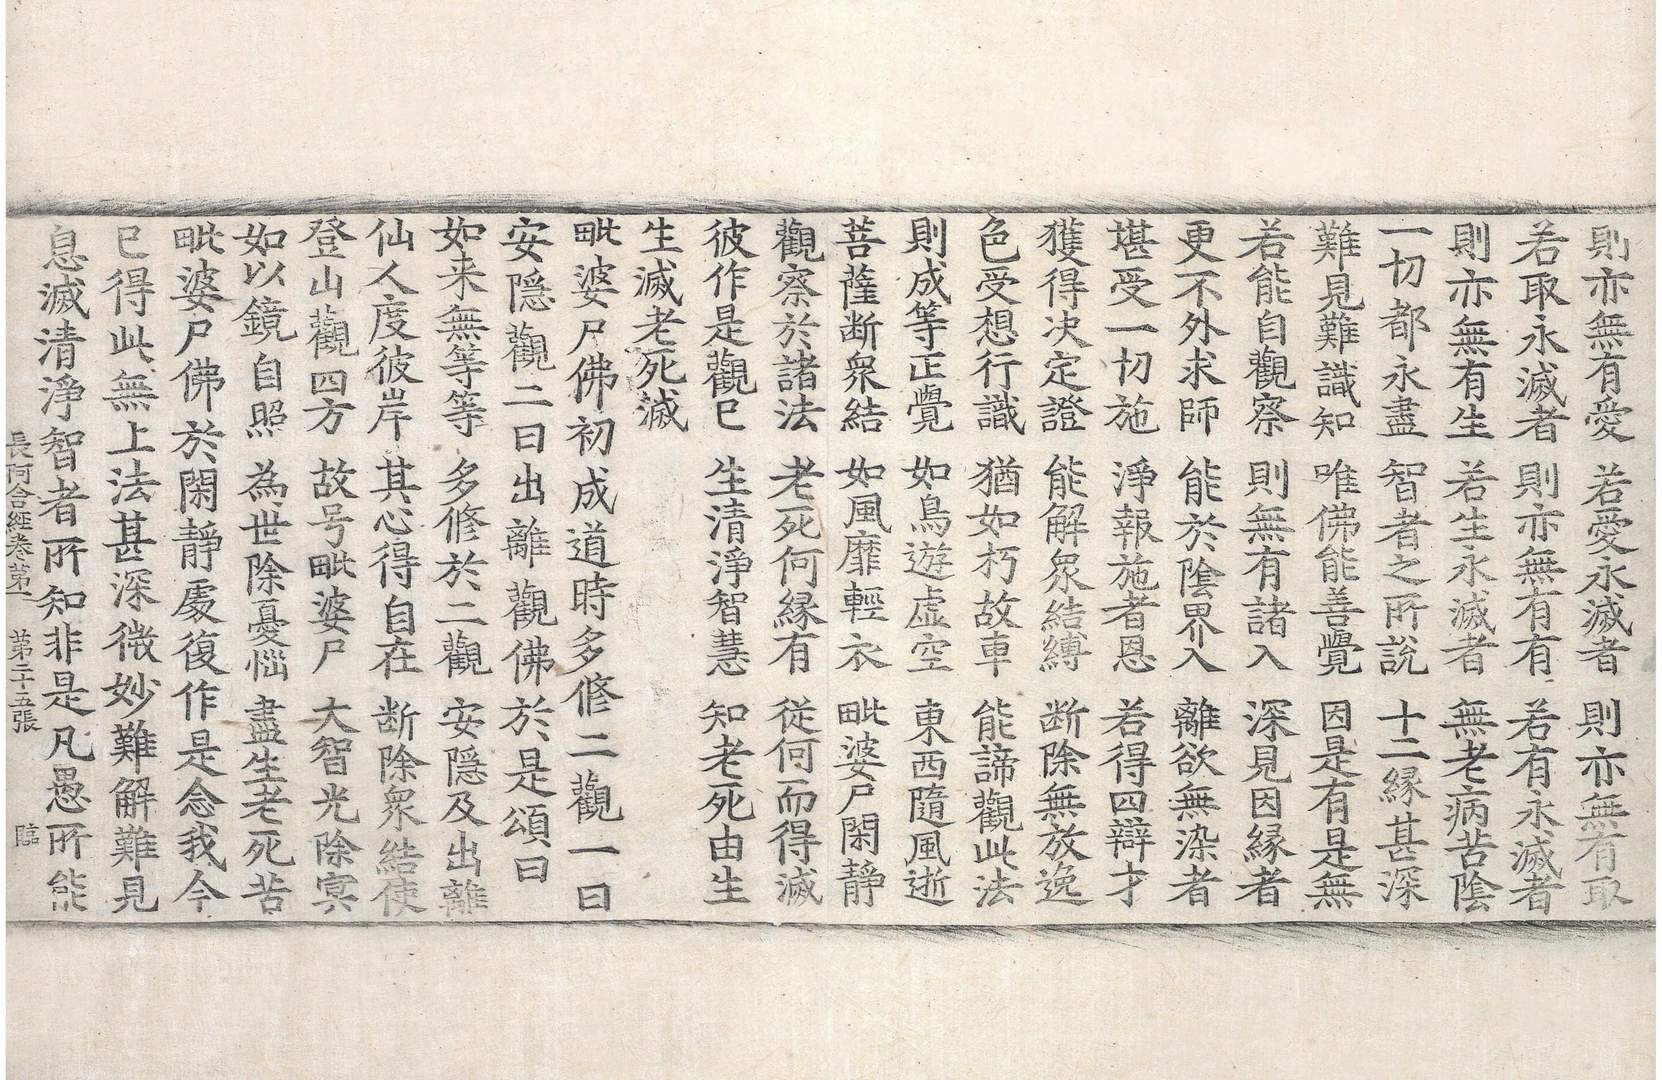 則亦無有愛 若愛永滅者 則亦無有取
若取永滅者 則亦無有有 若有永滅者
則亦無有生 若生永滅者 無老病苦陰
一切都永盡 智者之所說 十二緣甚深
難見難識知 唯佛能善覺 因是有是無
若能自觀察 則無有諸入 深見因緣者
更不外求師 能於陰界入 離欲無染者
堪受一切施 淨報施者恩 若得四辯才
獲得決定證 能解眾結縛 斷除無放逸
色受想行識 猶如朽故車 能諦觀此法
則成等正覺 如鳥遊虛空 東西隨風逝
菩薩断眾結 如風靡輕衣 毗婆尸閑靜
觀察於諸法 老死何緣有 從何而得滅
彼作是觀已 生清淨智慧 知老死由生
生滅老死滅
毗婆尸佛初成道時多修二觀一曰
安隱觀二曰出離觀佛於是頌曰
如來無等等 多修於二觀 安隱及出離
仙人度彼岸 其心得自在 断除眾結使
登山觀四方 故号毗婆尸 大智光除冥
如以鏡自照 為世除憂惱 盡生老死苦
毗婆尸佛於閑靜處復作是念我今
已得此無上法甚深微妙難解難見
息滅清淨智者所知非是凡愚所能
長阿含經卷第一 第二十五張 臨